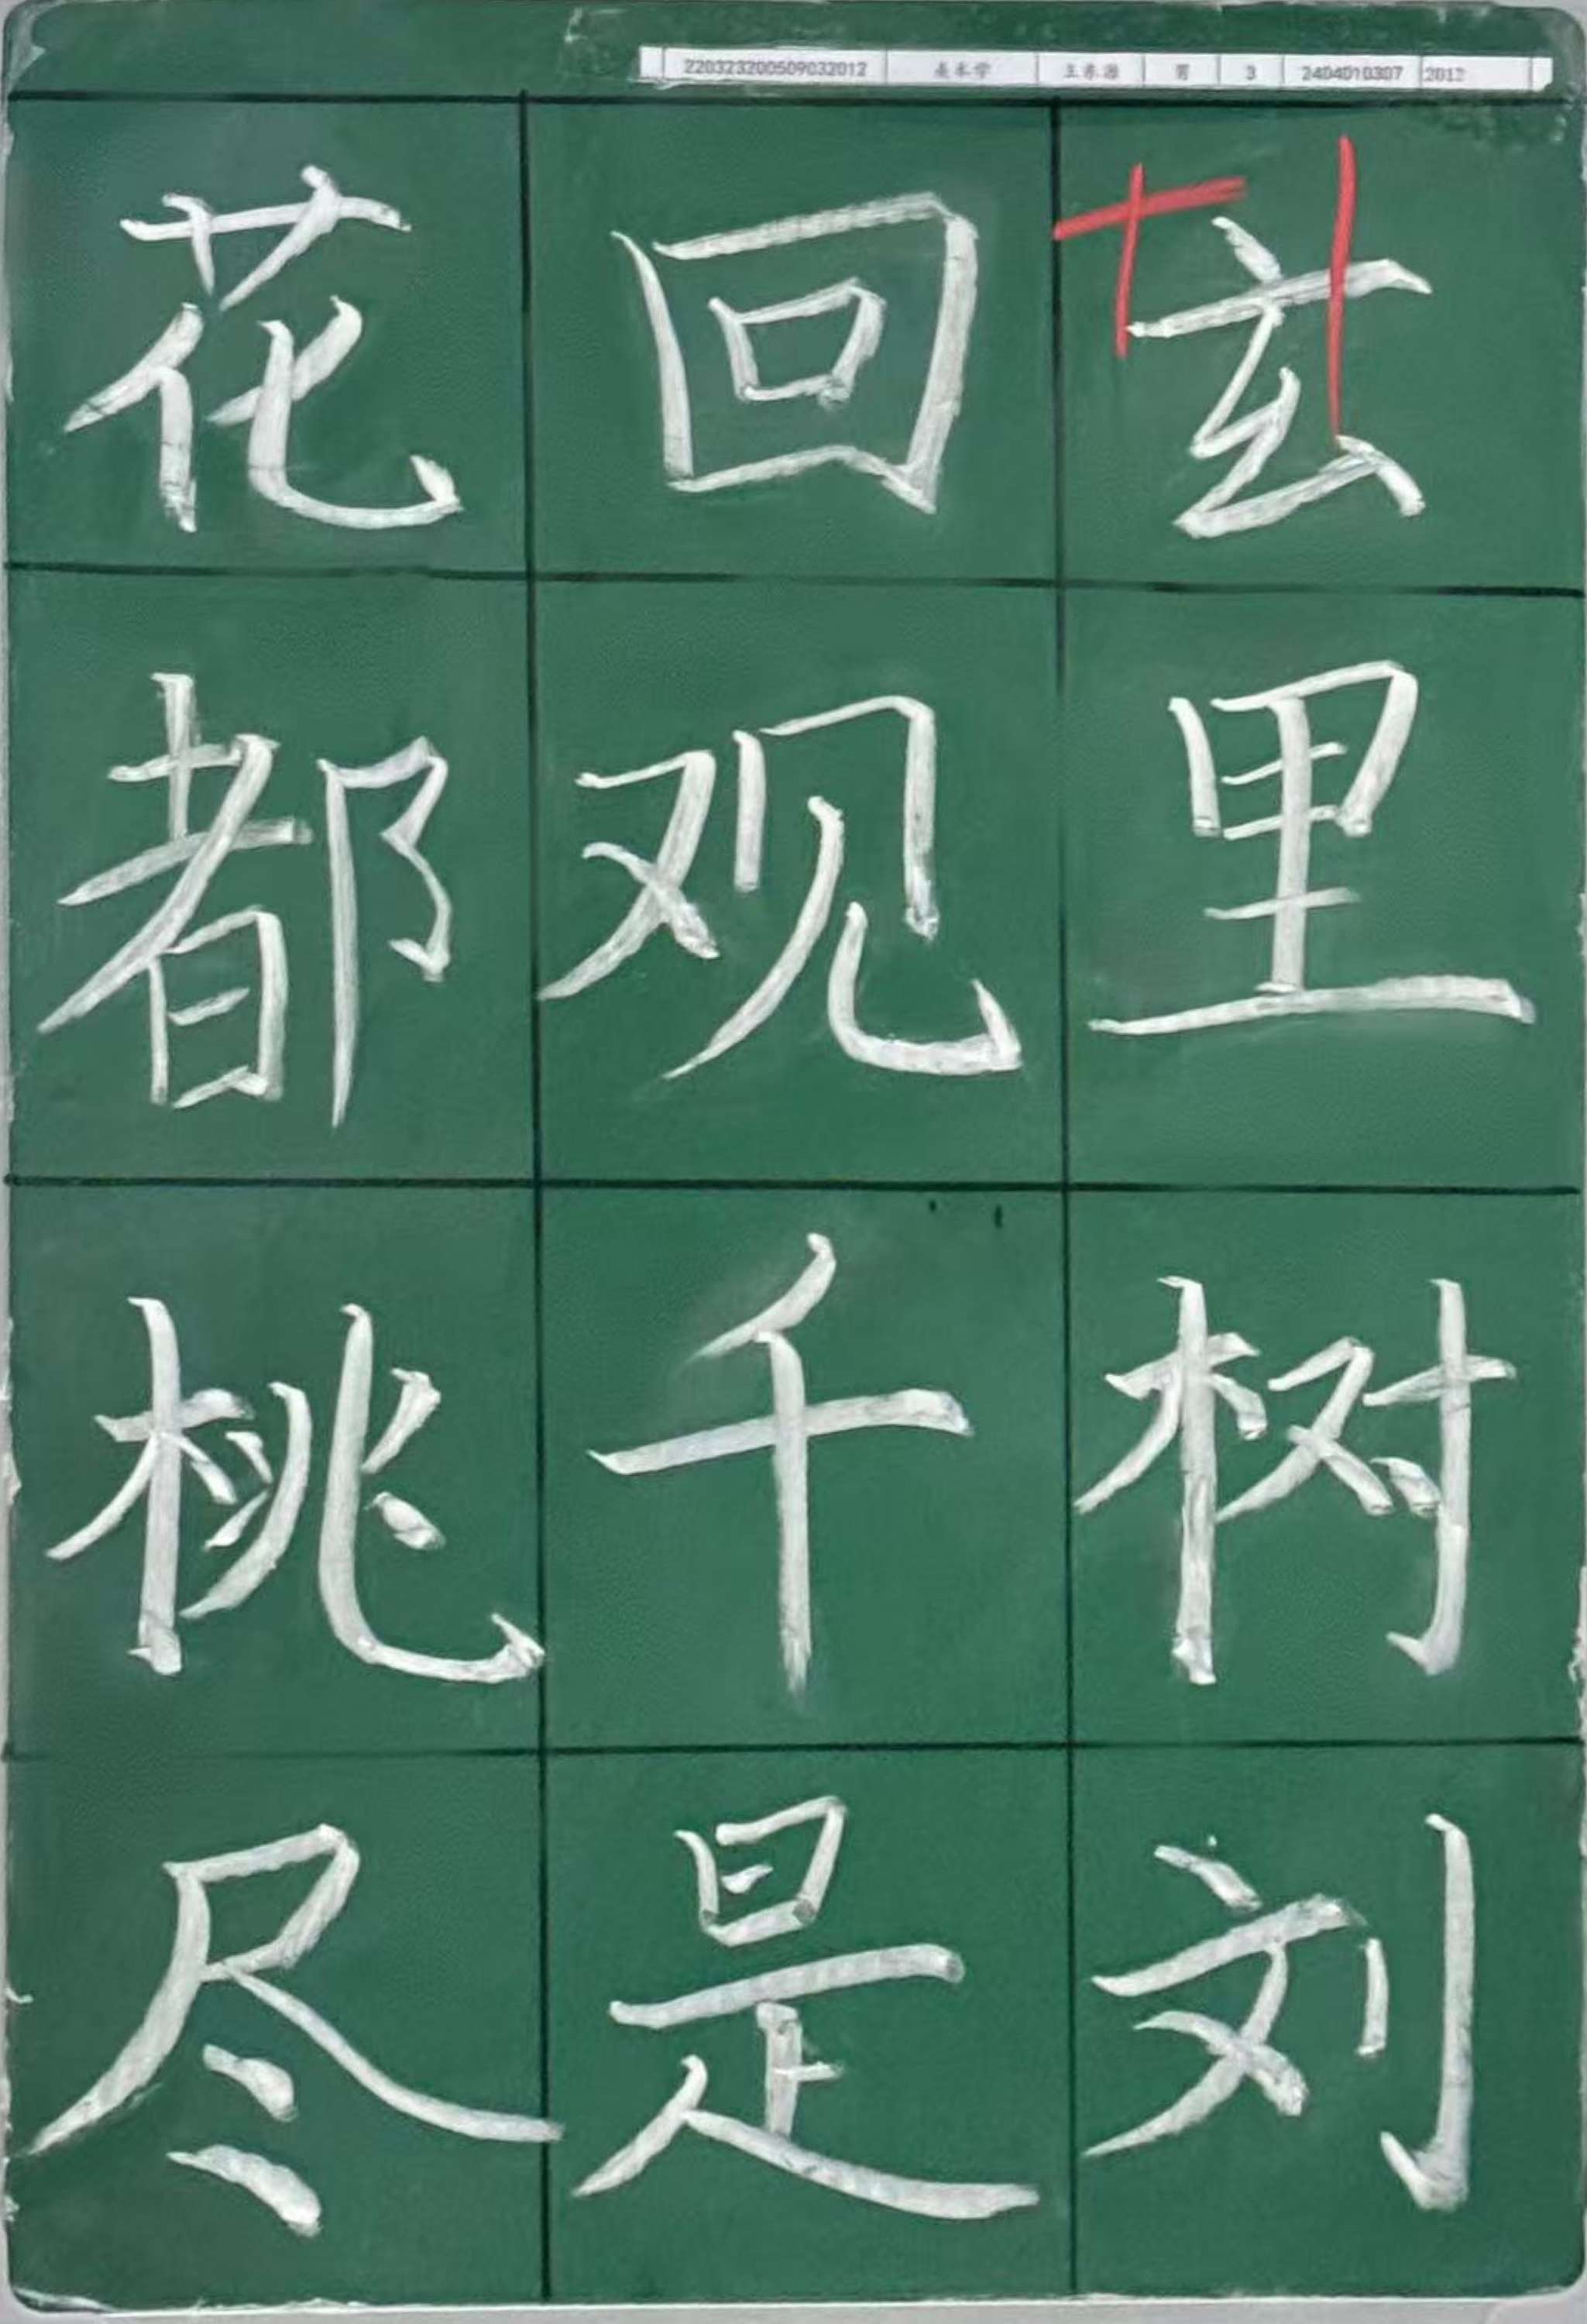 220323200509032012 美术学 男 3 2404010307 2012
花回玄
都观里
桃千树
尽是刘